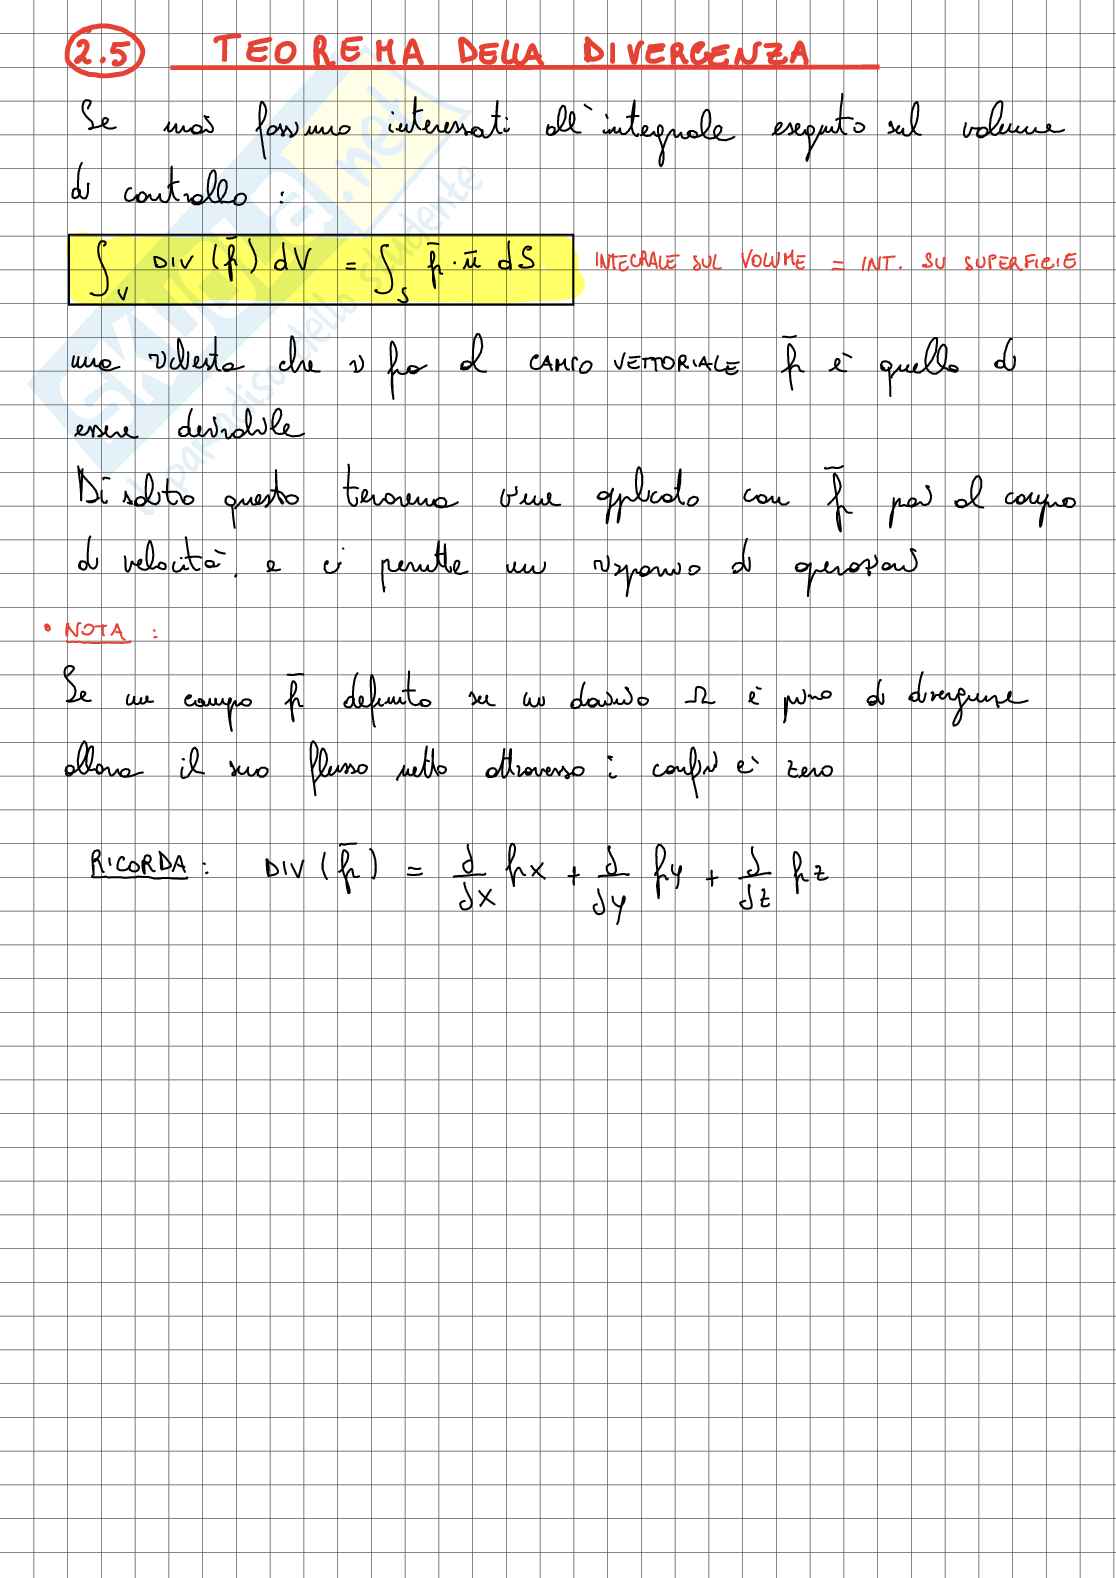 2.5 TEOREMA DELLA DIVERGENZA
Se noi fossimo interessati all'integrale eseguito sul volume
di controllo :
∫_V DIV (f̄) dV = ∫_S f̄ · n̄ dS INTEGRALE SUL VOLUME = INT. SU SUPERFICIE
una richiesta che si fa al CAMPO VETTORIALE f̄ è quello di
essere derivabile
Di solito questo teorema viene applicato con f̄ pari al campo
di velocità, e ci permette un risparmio di operazioni
• NOTA :
Se un campo f̄ definito su un dominio Ω è privo di divergenze
allora il suo flusso netto attraverso i confini è zero
RICORDA : DIV (f̄) = d/dx fx + d/dy fy + d/dz fz
SKUOLA.net
il paradiso dello studente